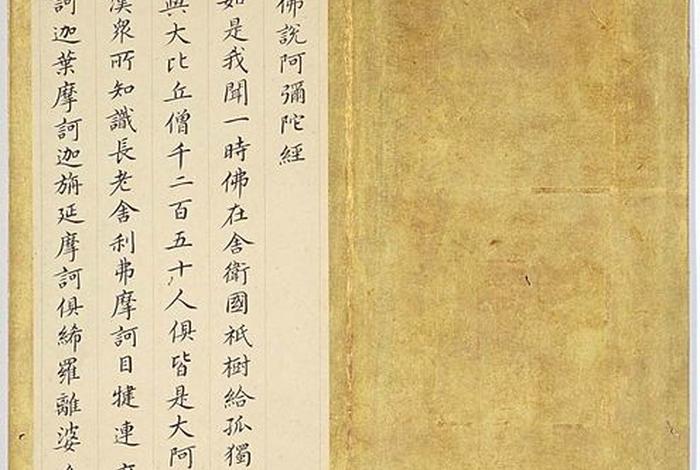 佛說阿彌陀經
如是我聞一時佛在舍衛國祇樹給孤獨
與大比丘僧千二百五十人俱皆是大阿
漢眾所知識長老舍利弗摩訶目犍連
訶迦葉摩訶迦旃延摩訶俱絺羅離婆